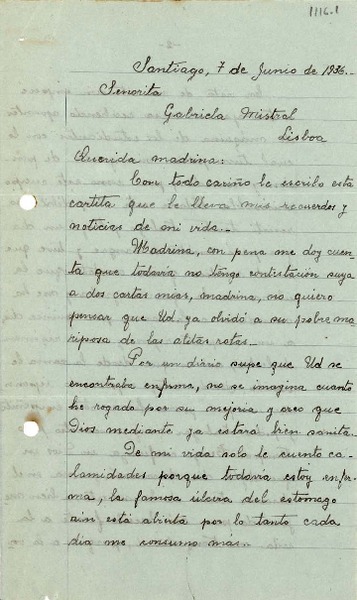 1116.1
Santiago, 7 de Junio de 1936.
Señorita
Gabriela Mistral
Lisboa
Querida madrina:
Con todo cariño le escribo esta
cartita que le lleva mis recuerdos y
noticias de mi vida.-
Madrina, con pena me doy cuen-
ta que todavía no tengo contistación suya
a dos cartas mías, madrina, no quiero
pensar que Ud ya olvidó a su pobre ma-
riposa de las alitas rotas.-
Por un diario supe que Ud se
encontraba enferma, no se imagina cuanto
he rogado por su mejoría y creo que
Dios mediante ya estará bien sanita.-
De mi vida solo le cuento ca-
lamidades porque todavía estoy enfer-
ma, la famosa úlcera del estomago
aún está abierta por lo tanto cada
día me consumo más.-